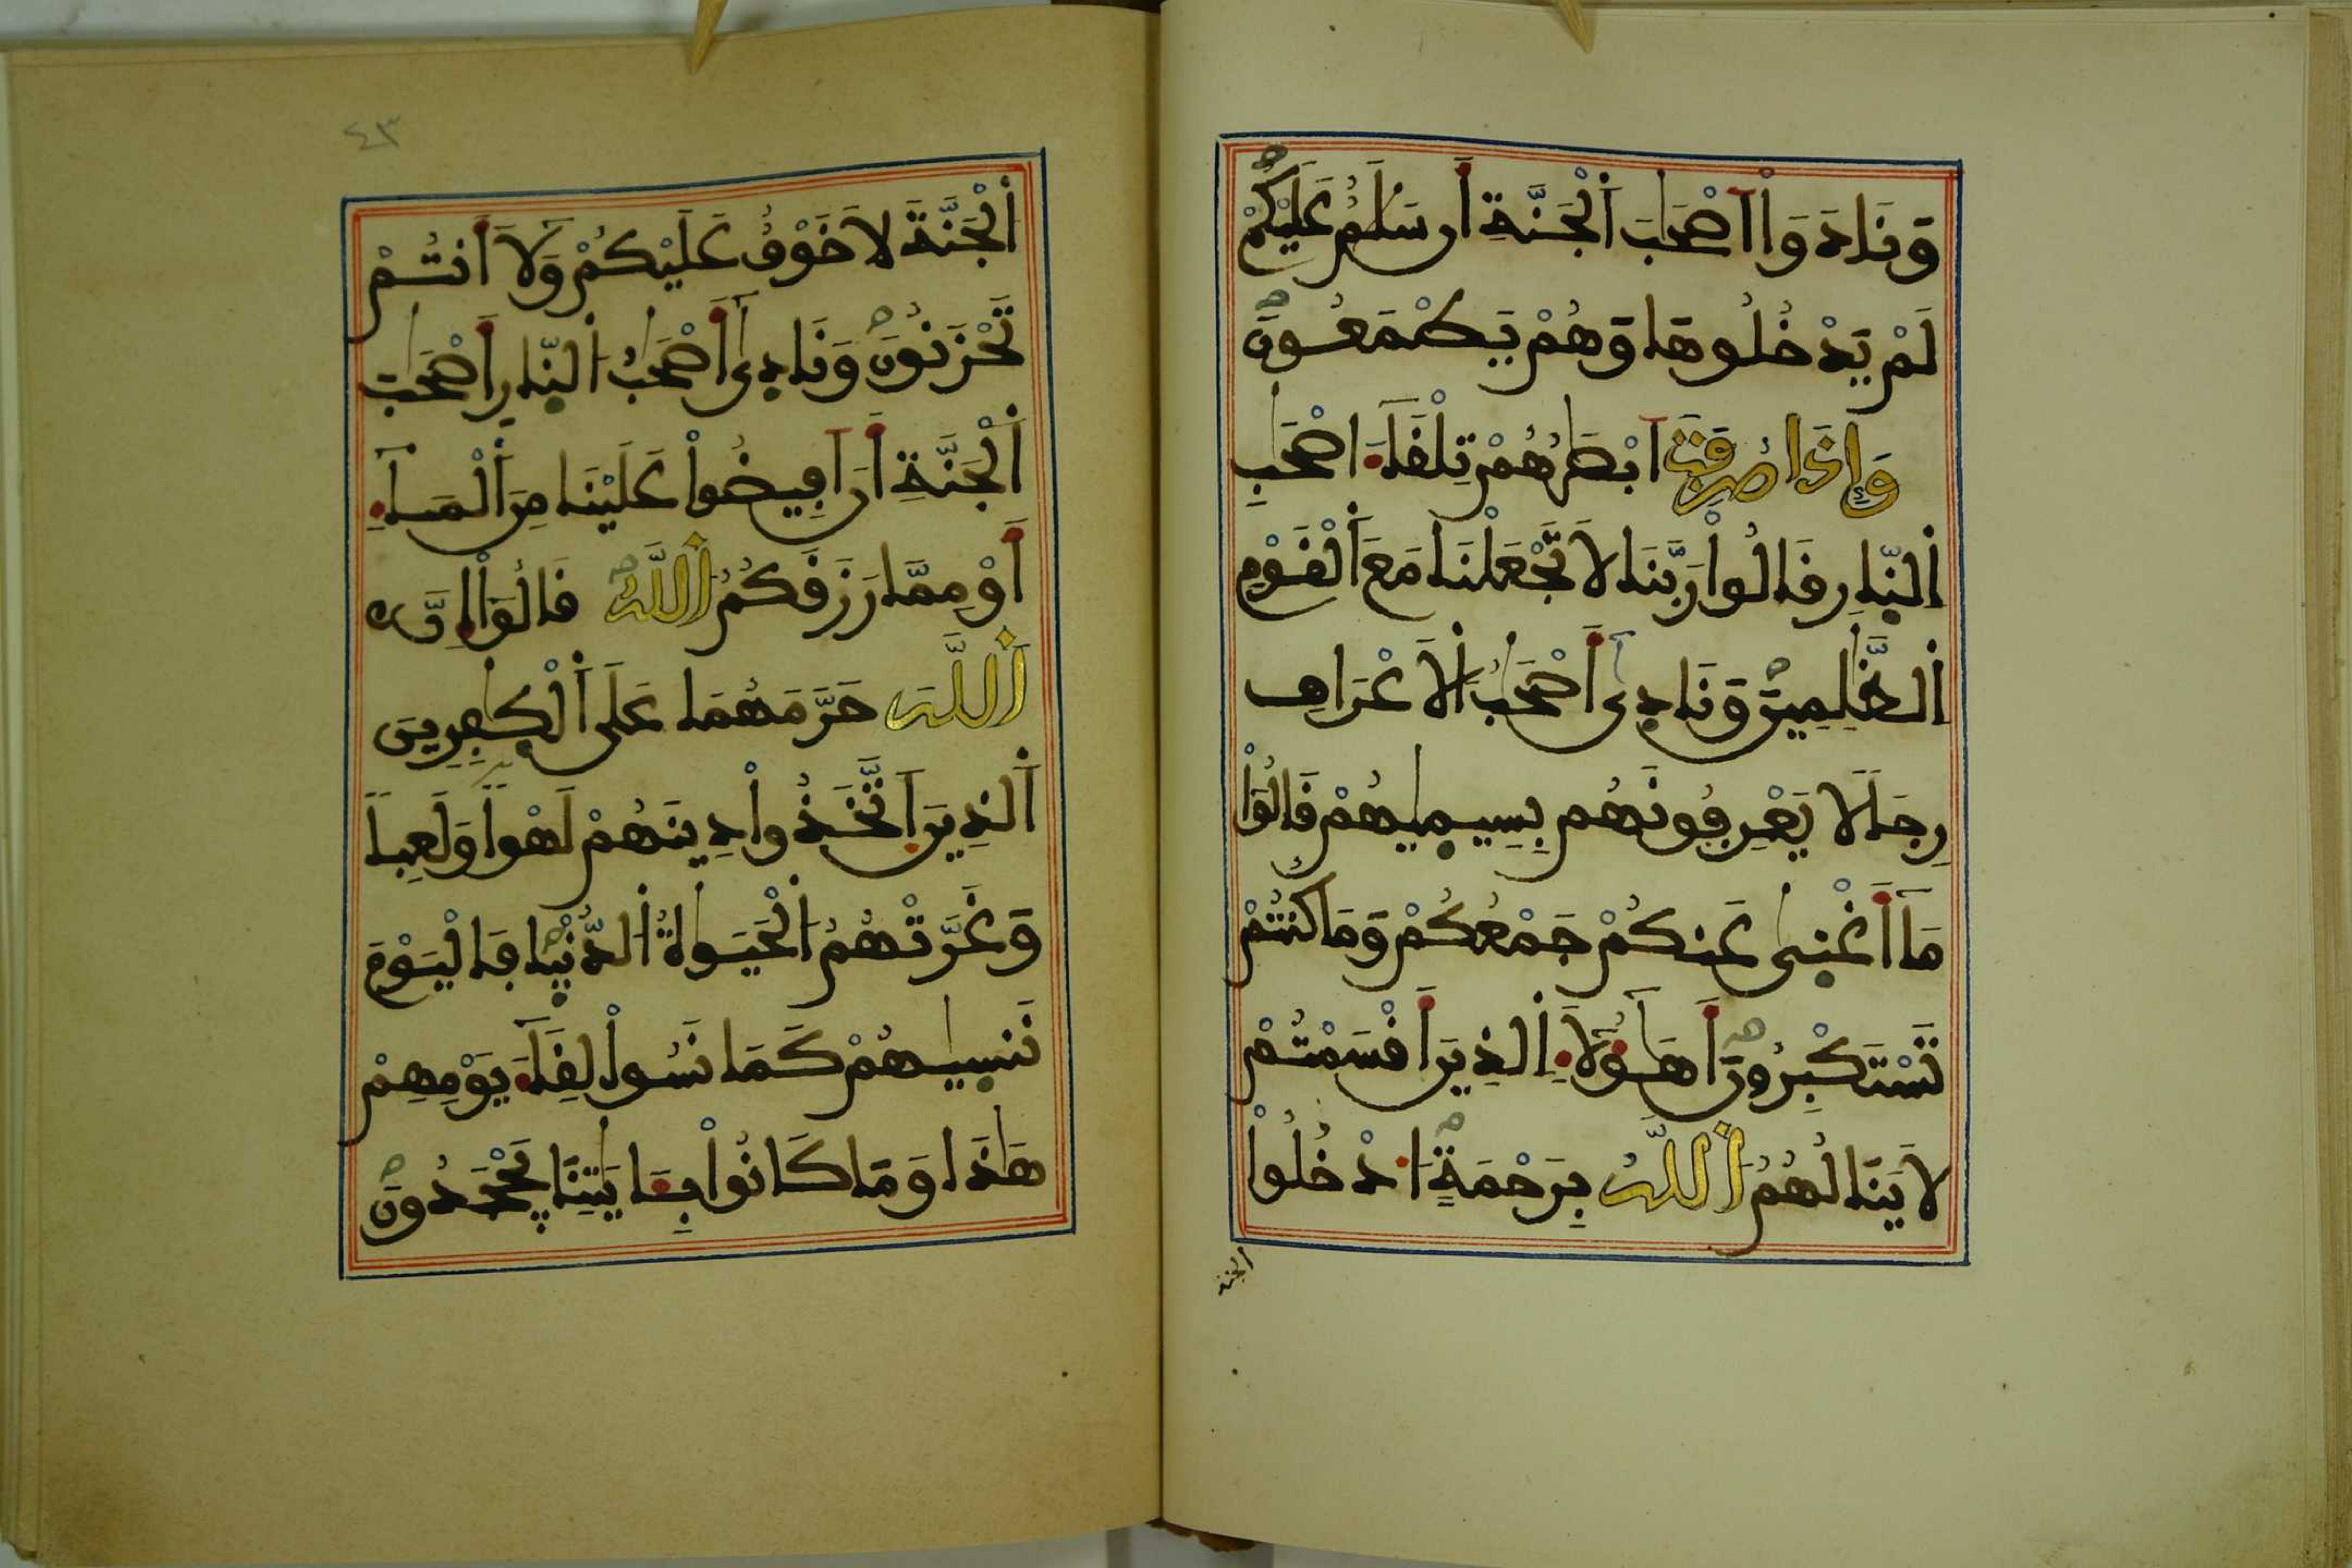 وَنَادَوَاْ اَصْحَٰبَ اَ۬لْجَنَّةِ أَن سَلَٰمٌ عَلَيْكُمْ
لَمْ يَدْخُلُوهَا وَهُمْ يَطْمَعُونَ
وَإِذَا صُرِفَتَ اَبْصَٰرُهُمْ تِلْقَآءَ اصْحَٰبِ
اِ۬لنّ۪ارِ قَالُواْ رَبَّنَا لَا تَجْعَلْنَا مَعَ اَ۬لْقَوْمِ
اِ۬لظَّٰلِمِينَ وَنَادِىٰٓ أَصْحَٰبُ اُ۬لَاعْرَافِ
رِجَالًا يَعْرِفُونَهُم بِسِيمٜيٰهُمْ قَالُواْ
مَآ أَغْنٜىٰ عَنكُمْ جَمْعُكُمْ وَمَا كُنتُمْ
تَسْتَكْبِرُونَ أَهَٰٓؤُلَآءِ اِ۬لذِينَ أَقْسَمْتُمْ
لَا يَنَالُهُمُ اُ۬للَّهُ بِرَحْمَةٍ ادْخُلُواْ
الجنة
٤٣
اُ۬لْجَنَّةَ لَا خَوْفٌ عَلَيْكُمْ وَلَآ أَنتُمْ
تَحْزَنُونَ وَنَادِىٰٓ أَصْحَٰبُ اُ۬لنّ۪ارِ أَصْحَٰبَ
اَ۬لْجَنَّةِ أَنَ اَفِيضُواْ عَلَيْنَا مِنَ اَ۬لْمَآءِ
أَوْ مِمَّا رَزَقَكُمُ اُ۬للَّهُ قَالُوٓاْ إِنَّ
اَ۬للَّهَ حَرَّمَهُمَا عَلَى اَ۬لْكٰ۪فِرِينَ
اَ۬لذِينَ اَ۪تَّخَذُواْ دِينَهُمْ لَهْواً وَلَعِباً
وَغَرَّتْهُمُ اُ۬لْحَيَوٰةُ اُ۬لدُّنْي۪ا فَالْيَوْمَ
نَنسٜيٰهُمْ كَمَا نَسُواْ لِقَآءَ يَوْمِهِمْ
هَٰذَا وَمَا كَانُواْ بِـَٔايَٰتِنَا يَجْحَدُونَ